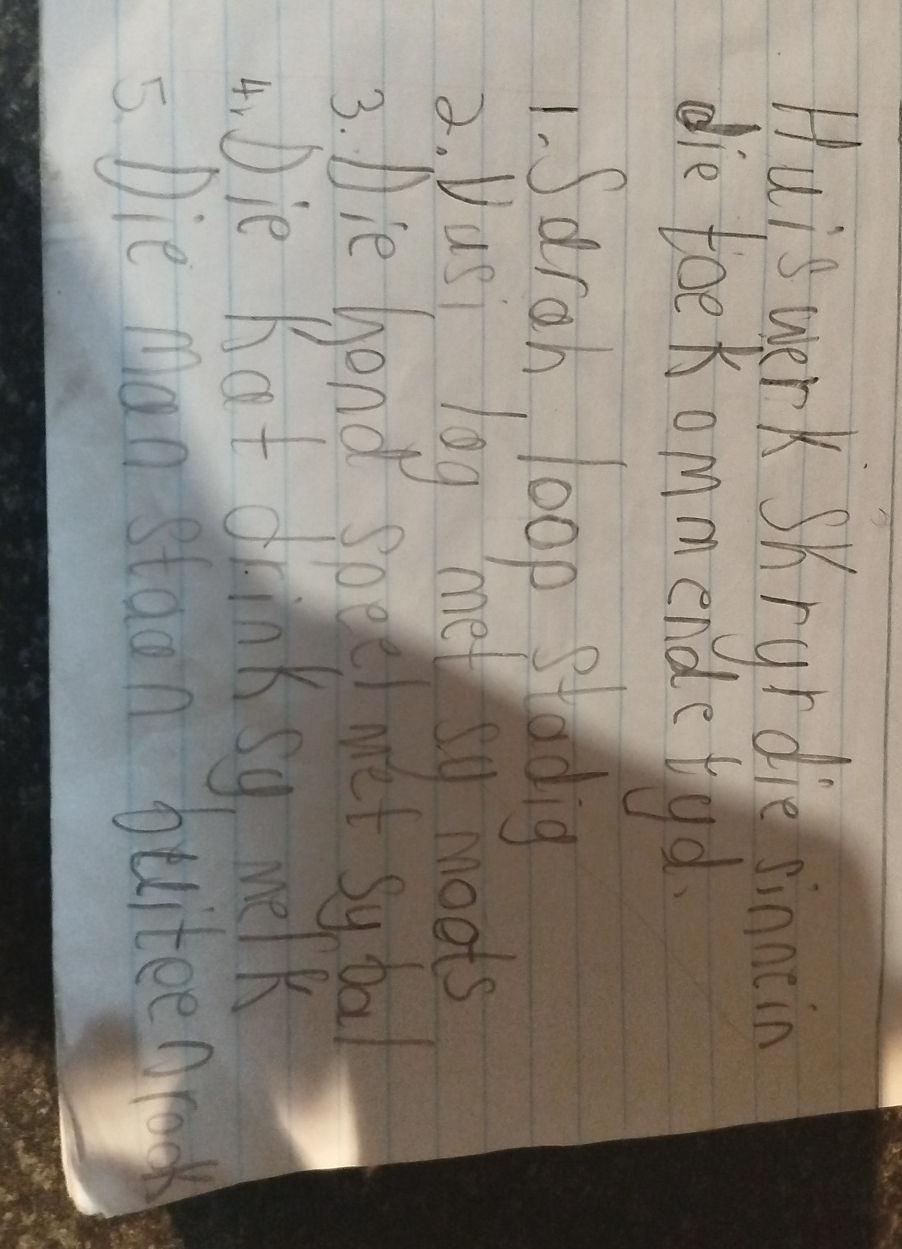 Huiswerk Skryf die sinne in
die toekommende tyd.
1. Sarah loop stadig
2. Vusi lag met sy maats
3. Die hond speel met sy bal
4. Die kat drink sy melk
5. Die man staan buite en rook